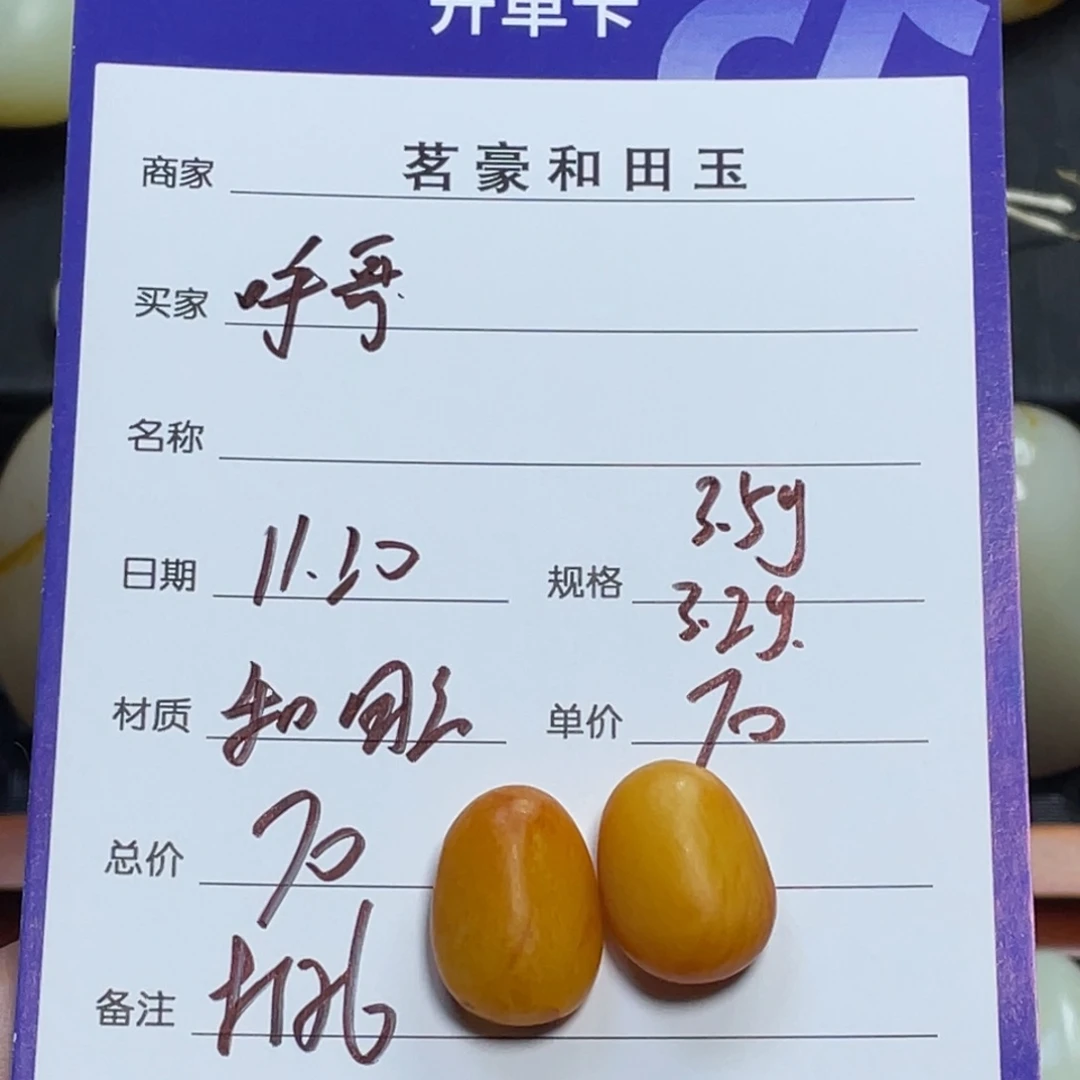 开单卡
商家 茗豪和田玉
买家 呼哥
名称
日期 11.10 规格 3.5g
3.2g.
材质 和田玉 单价 70
总价 70
备注 打孔